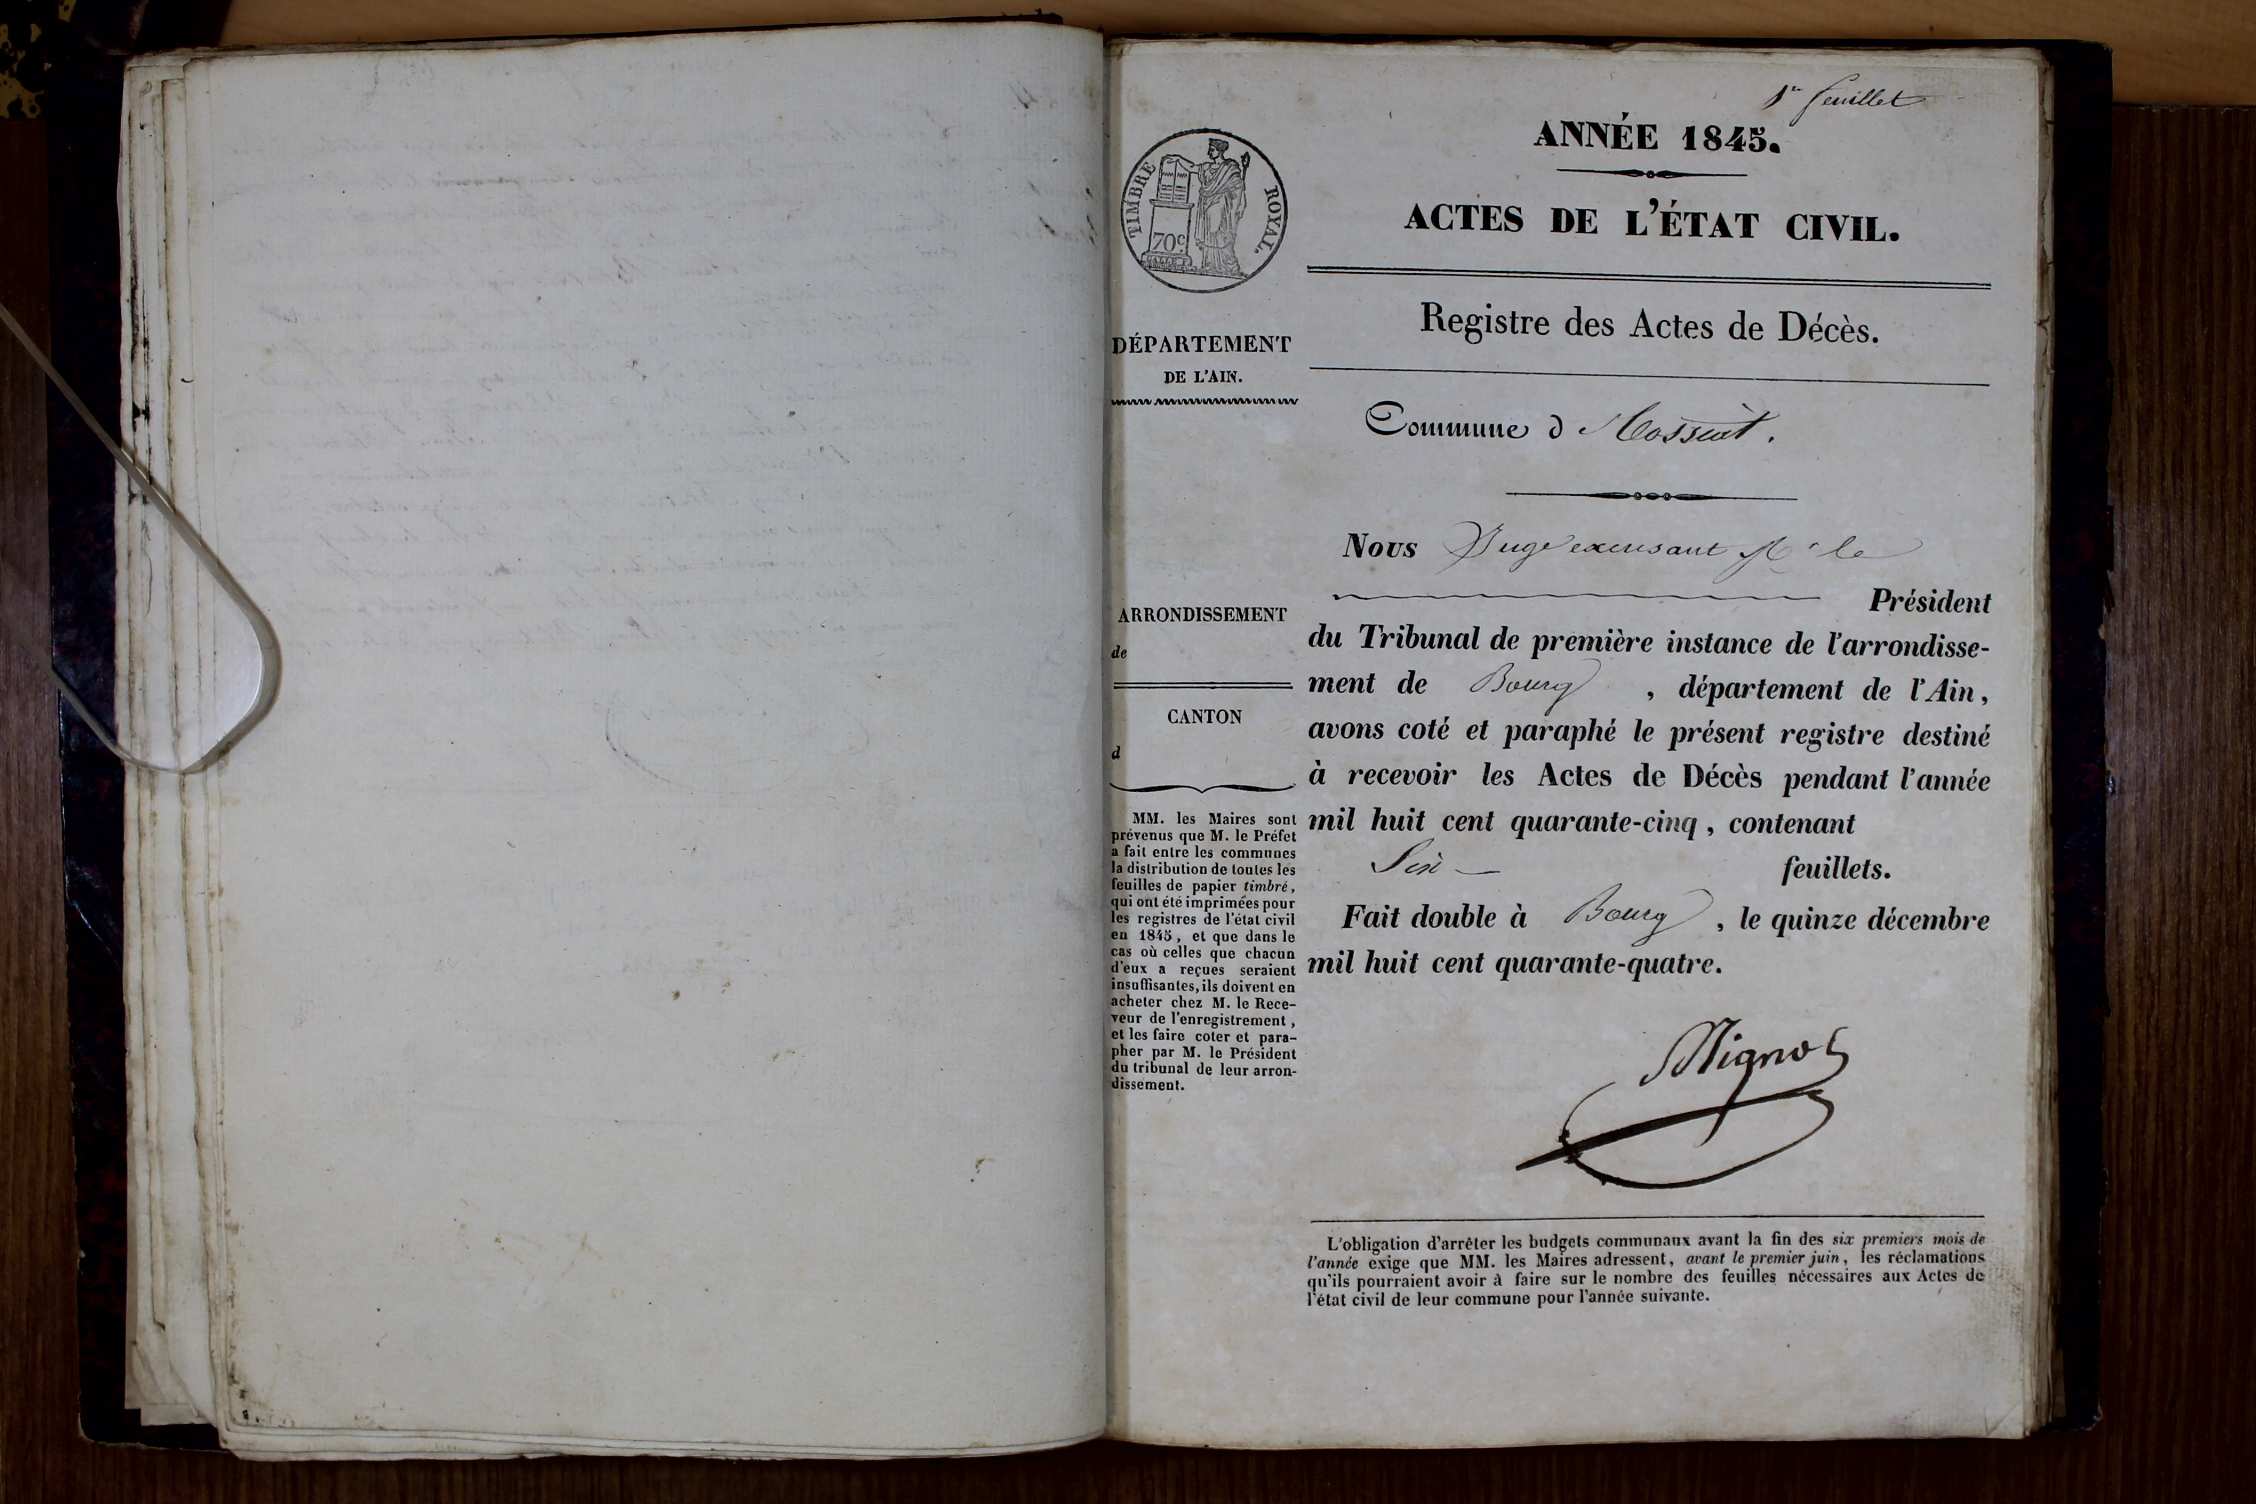 1er feuillet
ANNÉE 1845.
ACTES DE L'ÉTAT CIVIL.
Registre des Actes de Décès.
TIMBRE ROYAL.
70c
DÉPARTEMENT
DE L'AIN.
Commune d
Nous Juge excusant Mr le
Président
du Tribunal de première instance de l'arrondisse-
ment de Bourg , département de l'Ain,
avons coté et paraphé le présent registre destiné
à recevoir les Actes de Décès pendant l'année
mil huit cent quarante-cinq, contenant
Six feuillets.
Fait double à Bourg , le quinze décembre
mil huit cent quarante-quatre.
Mignot
ARRONDISSEMENT
de
CANTON
d
MM. les Maires sont
prévenus que M. le Préfet
a fait entre les communes
la distribution de toutes les
feuilles de papier timbré,
qui ont été imprimées pour
les registres de l'état civil
en 1845, et que dans le
cas où celles que chacun
d'eux a reçues seraient
insuffisantes, ils doivent en
acheter chez M. le Rece-
veur de l'enregistrement,
et les faire coter et para-
pher par M. le Président
du tribunal de leur arron-
dissement.
L'obligation d'arrêter les budgets communaux avant la fin des six premiers mois de
l'année exige que MM. les Maires adressent, avant le premier juin, les réclamations
qu'ils pourraient avoir à faire sur le nombre des feuilles nécessaires aux Actes de
l'état civil de leur commune pour l'année suivante.